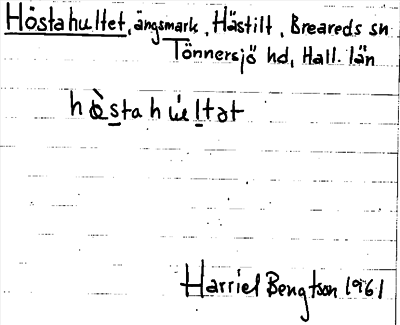 Höstahultet, ängsmark, Hästilt, Breareds sn
Tönnersjö hd, Hall. län
hὸstahu̇ltət
Harriel Bengtson 1961